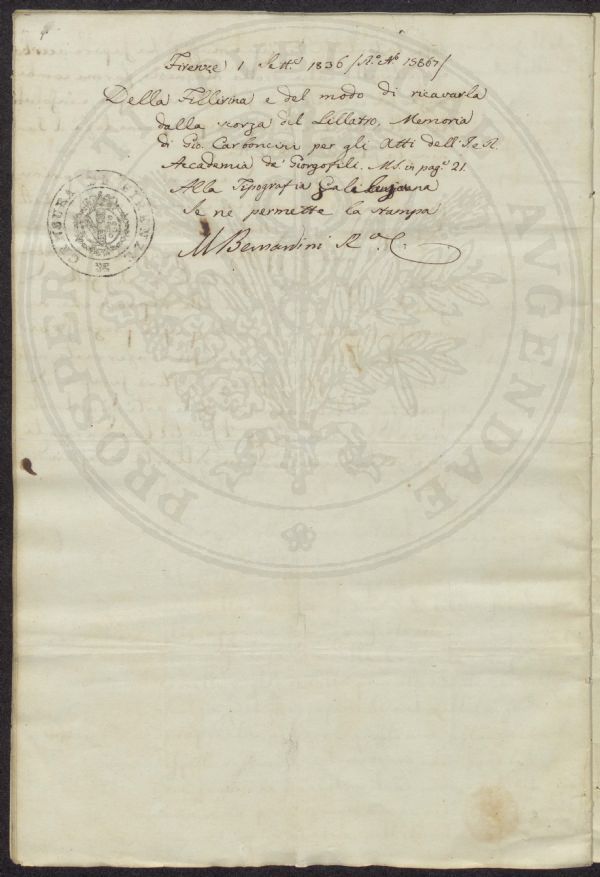 Firenze 1 Sett.e 1836 /N.o A.b 15867/
Della Fillirina e del modo di ricavarla
dalla scorza del Lillatro. Memoria
di Gio. Carboncini per gli Atti dell'I e R.
Accademia de' Giorgofili. MS. in pag.e 21.
Alla Tipografia
Se ne permette la stampa
M Bernardini R.
CENSURA DI FIRENZE
PROSPERITATI PUBLICAE AUGENDAE